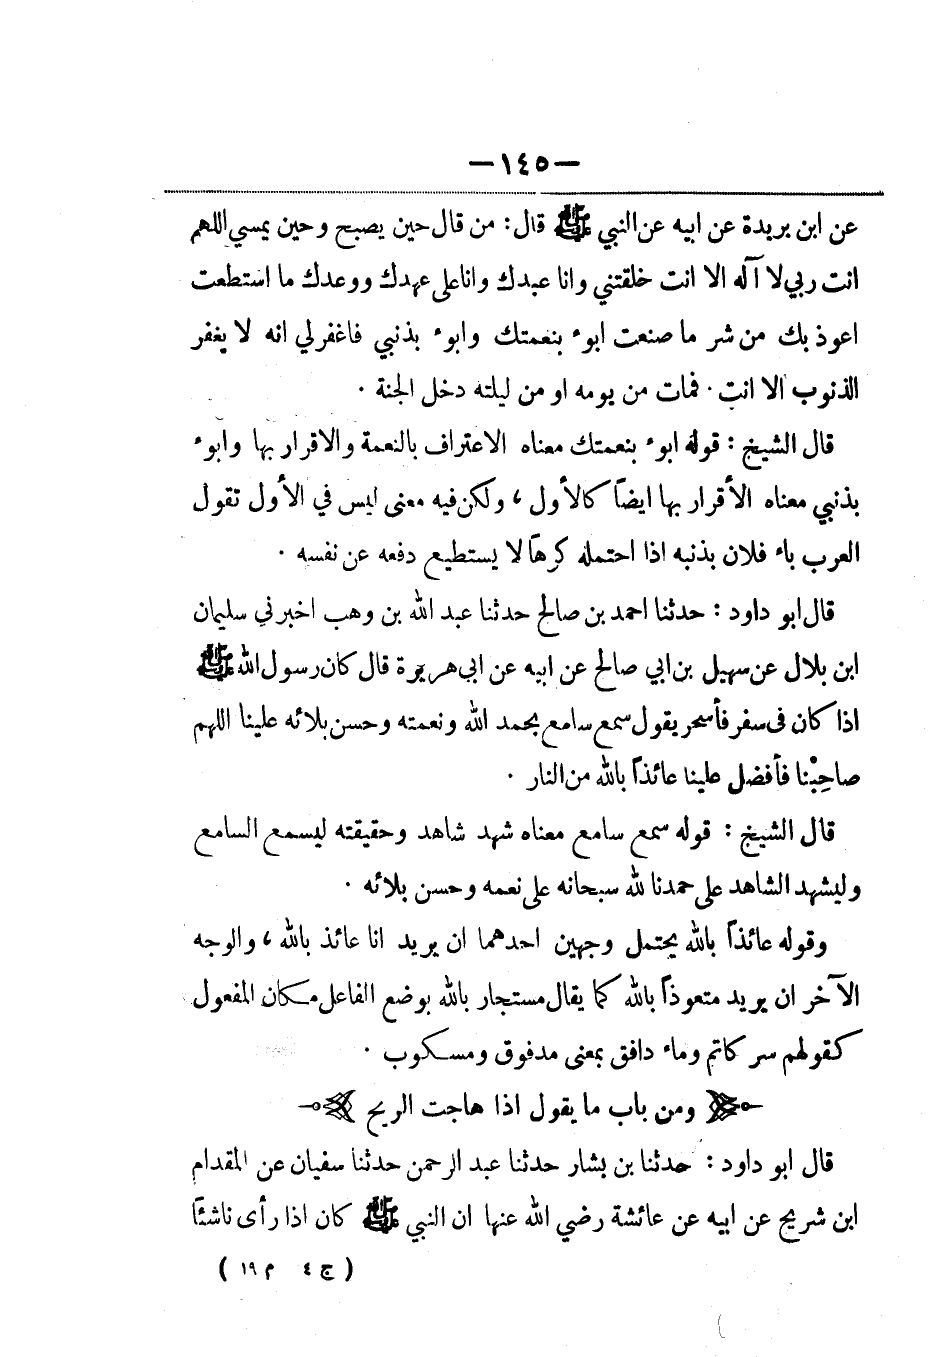 — ١٤٥ —
عن ابن بريدة عن ابيه عن النبي ﷺ قال: من قال حين يصبح وحين يمسي اللهم
انت ربي لا آله الا انت خلقتني وانا عبدك وانا على عهدك ووعدك ما استطعت
اعوذ بك من شر ما صنعت ابوء بنعمتك وابوء بذنبي فاغفر لي انه لا يغفر
الذنوب الا انت. فمات من يومه او من ليلته دخل الجنة.
قال الشيخ: قوله ابوء بنعمتك معناه الاعتراف بالنعمة والاقرار بها وابوء
بذنبي معناه الأقرار بها ايضاً كالأول، ولكن فيه معنى ليس في الأول تقول
العرب باء فلان بذنبه اذا احتمله كرهاً لا يستطيع دفعه عن نفسه.
قال ابو داود: حدثنا احمد بن صالح حدثنا عبد الله بن وهب اخبرني سليمان
ابن بلال عن سهيل بن ابي صالح عن ابيه عن ابي هريرة قال كان رسول الله ﷺ
اذا كان فى سفر فأسحر يقول سمع سامع بحمد الله ونعمته وحسن بلائه علينا اللهم
صاحِبْنا فأفضل علينا عائذاً بالله من النار.
قال الشيخ: قوله سمع سامع معناه شهد شاهد وحقيقته ليسمع السامع
وليشهد الشاهد على حمدنا لله سبحانه على نعمه وحسن بلائه.
وقوله عائذاً بالله يحتمل وجهين احدهما ان يريد انا عائذ بالله، والوجه
الآخر ان يريد متعوذاً بالله كما يقال مستجار بالله بوضع الفاعل مكان المفعول
كقولهم سر كاتم وماء دافق بمعنى مدفوق ومسكوب.
ومن باب ما يقول اذا هاجت الريح
قال ابو داود: حدثنا بن بشار حدثنا عبد الرحمن حدثنا سفيان عن المقدام
ابن شريح عن ابيه عن عائشة رضي الله عنها ان النبي ﷺ كان اذا رأى ناشئاً
(ج ٤ م ١٩)